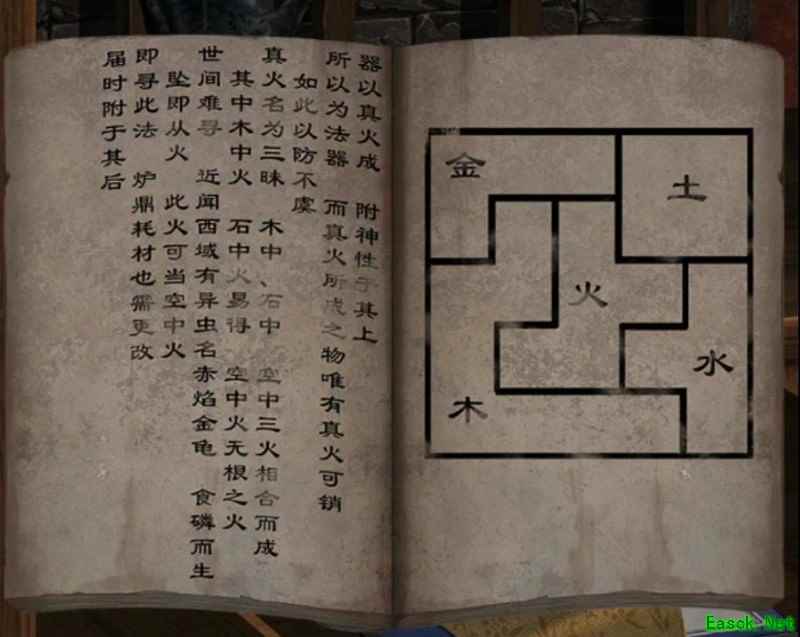 器以真火成 附神性于其上
所以为法器 而真火所成之物唯有真火可销
如此以防不虞
真火名为三昧 木中、石中 空中三火相合而成
其中木中火 石中火易得 空中火无根之火
世间难寻 近闻西域有异虫名赤焰金龟 食磷而生
坠即从火 此火可当空中火
即寻此法 炉鼎耗材也需更改
届时附于其后
金
土
火
水
木
Easck.Net